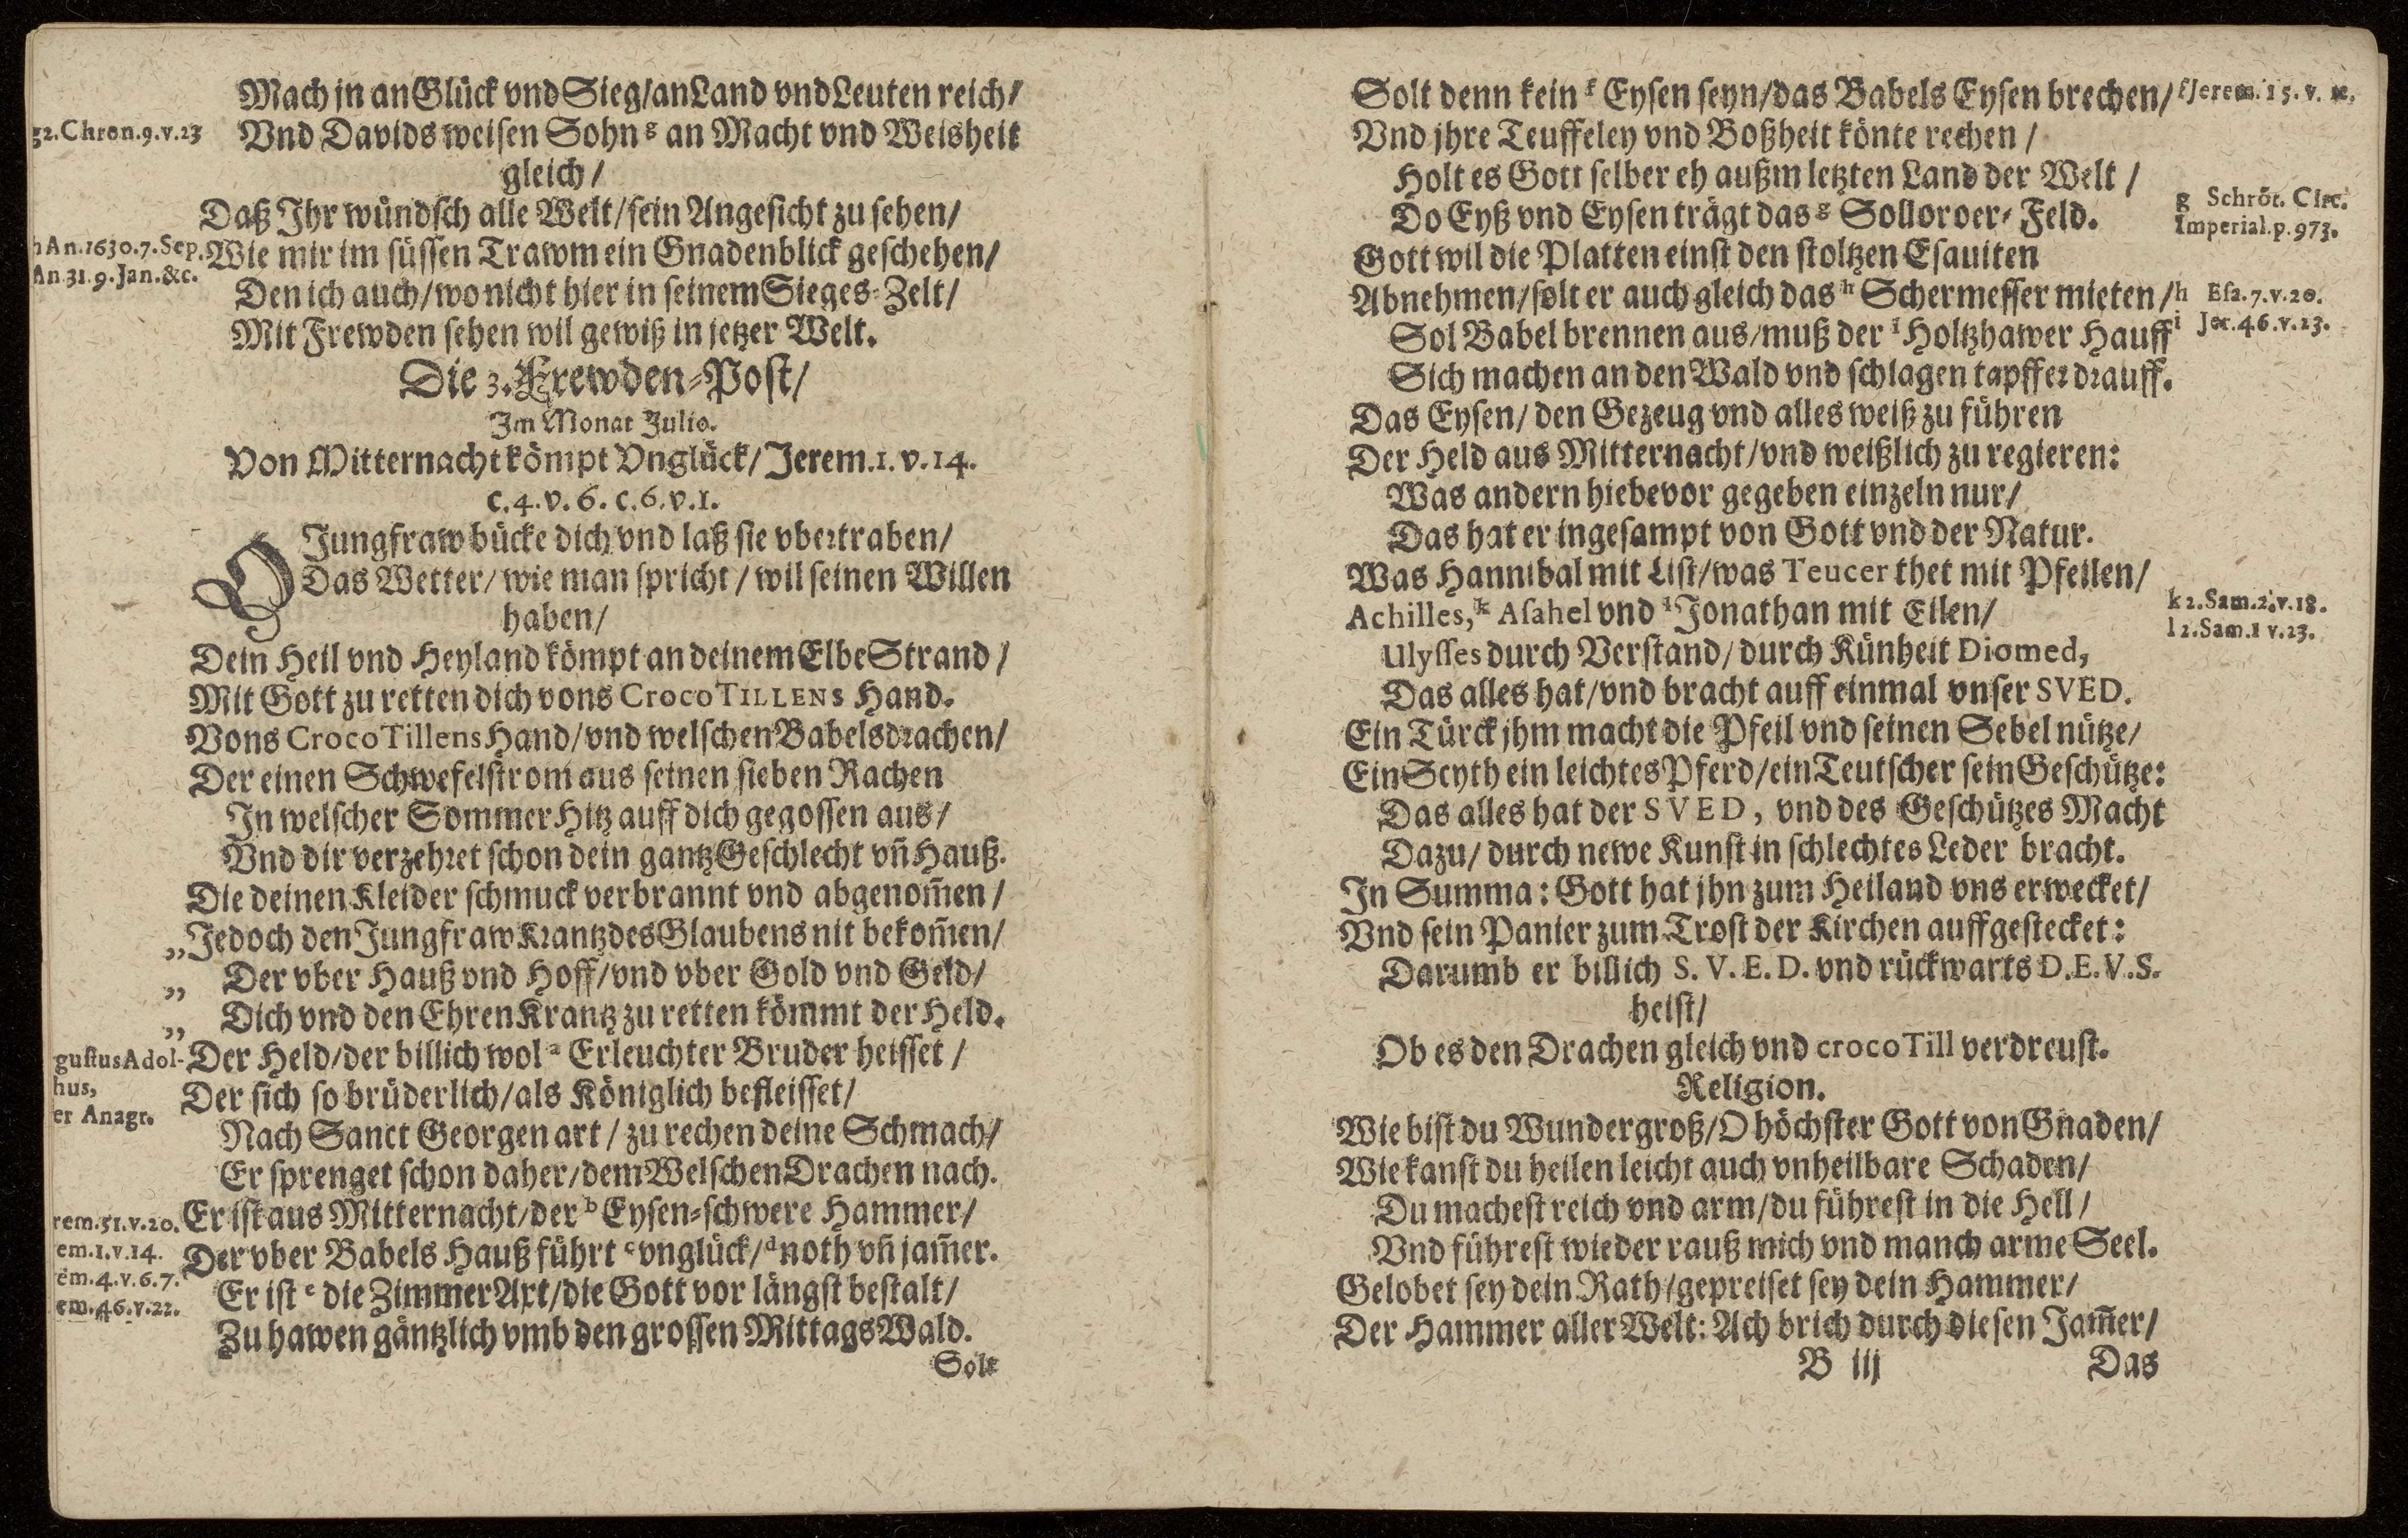 Mach jn an Glück vnd Sieg/an Land vnd Leuten reich/
g2.Chron.9.v.23
Vnd Davids weisen Sohn g an Macht vnd Weisheit
gleich/
Daß Ihr wündsch alle Welt/sein Angesicht zu sehen/
hAn.1630.7.Sep.
Wie mir im süssen Trawm ein Gnadenblick geschehen/
An.31.9.Jan.&c.
Den ich auch/wo nicht hier in seinem Sieges-Zelt/
Mit Frewden sehen wil gewiß in jetzer Welt.
Die 3. Frewden-Post/
Im Monat Julio.
Von Mitternacht kömpt Vnglück/Jerem.1.v.14.
c.4.v.6.c.6.v.1.
O Jungfraw bücke dich vnd laß sie vbertraben/
Das Wetter/wie man spricht/wil seinen Willen
haben/
Dein Heil vnd Heyland kömpt an deinem ElbeStrand/
Mit Gott zu retten dich vons CrocoTILLENS Hand.
Vons CrocoTillens Hand/vnd welschen Babelsdrachen/
Der einen Schwefelstrom aus seinen sieben Rachen
In welscher SommerHitz auff dich gegossen aus/
Vnd dir verzehret schon dein gantz Geschlecht vñ Hauß.
Die deinen Kleider schmuck verbrannt vnd abgenom̃en/
„Jedoch den JungfrawKrantz des Glaubens nit bekom̃en/
„ Der vber Hauß vnd Hoff/vnd vber Gold vnd Geld/
„ Dich vnd den EhrenKrantz zu retten kömmt der Held.
gustusAdol-
hus,
er Anagr.
Der Held/der billich wol a Erleuchter Bruder heisset/
Der sich so brüderlich/als Königlich befleisset/
Nach Sanct Georgen art/zu rechen deine Schmach/
Er sprenget schon daher/dem Welschen Drachen nach.
rem.51.v.20.
Er ist aus Mitternacht/der b Eysen-schwere Hammer/
em.1.v.14.
Der vber Babels Hauß führt c vnglück/d noth vñ jam̃er.
em.4.v.6.7.
Er ist e die ZimmerAxt/die Gott vor längst bestalt/
em.46.v.22.
Zu hawen gäntzlich vmb den grossen MittagsWald.
Solt
Solt denn kein f Eysen seyn/das Babels Eysen brechen/
fJerem.15.v.
Vnd jhre Teuffeley vnd Boßheit könte rechen/
Holt es Gott selber eh außm letzten Land der Welt/
Do Eyß vnd Eysen trägt das g Solloroer-Feld.
g Schröt. Circ.
Imperial.p.973.
Gott wil die Platten einst den stoltzen Esauiten
Abnehmen/solt er auch gleich das h Schermesser mieten/
h Esa.7.v.20.
Sol Babel brennen aus/muß der i Holtzhawer Hauff
i Jer.46.v.23.
Sich machen an den Wald vnd schlagen tapffer drauff.
Das Eysen/den Gezeug vnd alles weiß zu führen
Der Held aus Mitternacht/vnd weißlich zu regieren:
Was andern hiebevor gegeben einzeln nur/
Das hat er ingesampt von Gott vnd der Natur.
Was Hannibal mit List/was Teucer thet mit Pfeilen/
Achilles, k Asahel vnd l Jonathan mit Eilen/
k 2.Sam.2.v.18.
l 2.Sam.1 v.23.
Ulysses durch Verstand/durch Künheit Diomed,
Das alles hat/vnd bracht auff einmal vnser SVED.
Ein Türck jhm macht die Pfeil vnd seinen Sebel nütze/
Ein Scyth ein leichtes Pferd/ein Teutscher sein Geschütze:
Das alles hat der SVED, vnd des Geschützes Macht
Dazu/durch newe Kunst in schlechtes Leder bracht.
In Summa: Gott hat jhn zum Heiland vns erwecket/
Vnd sein Panier zum Trost der Kirchen auffgestecket:
Darumb er billich S.V.E.D. vnd rückwarts D.E.V.S.
heist/
Ob es den Drachen gleich vnd crocoTill verdreust.
Religion.
Wie bist du Wundergroß/O höchster Gott von Gnaden/
Wie kanst du heilen leicht auch vnheilbare Schaden/
Du machest reich vnd arm/du führest in die Hell/
Vnd führest wieder rauß mich vnd manch arme Seel.
Gelobet sey dein Rath/gepreiset sey dein Hammer/
Der Hammer aller Welt: Ach brich durch diesen Jam̃er/
B iij
Das